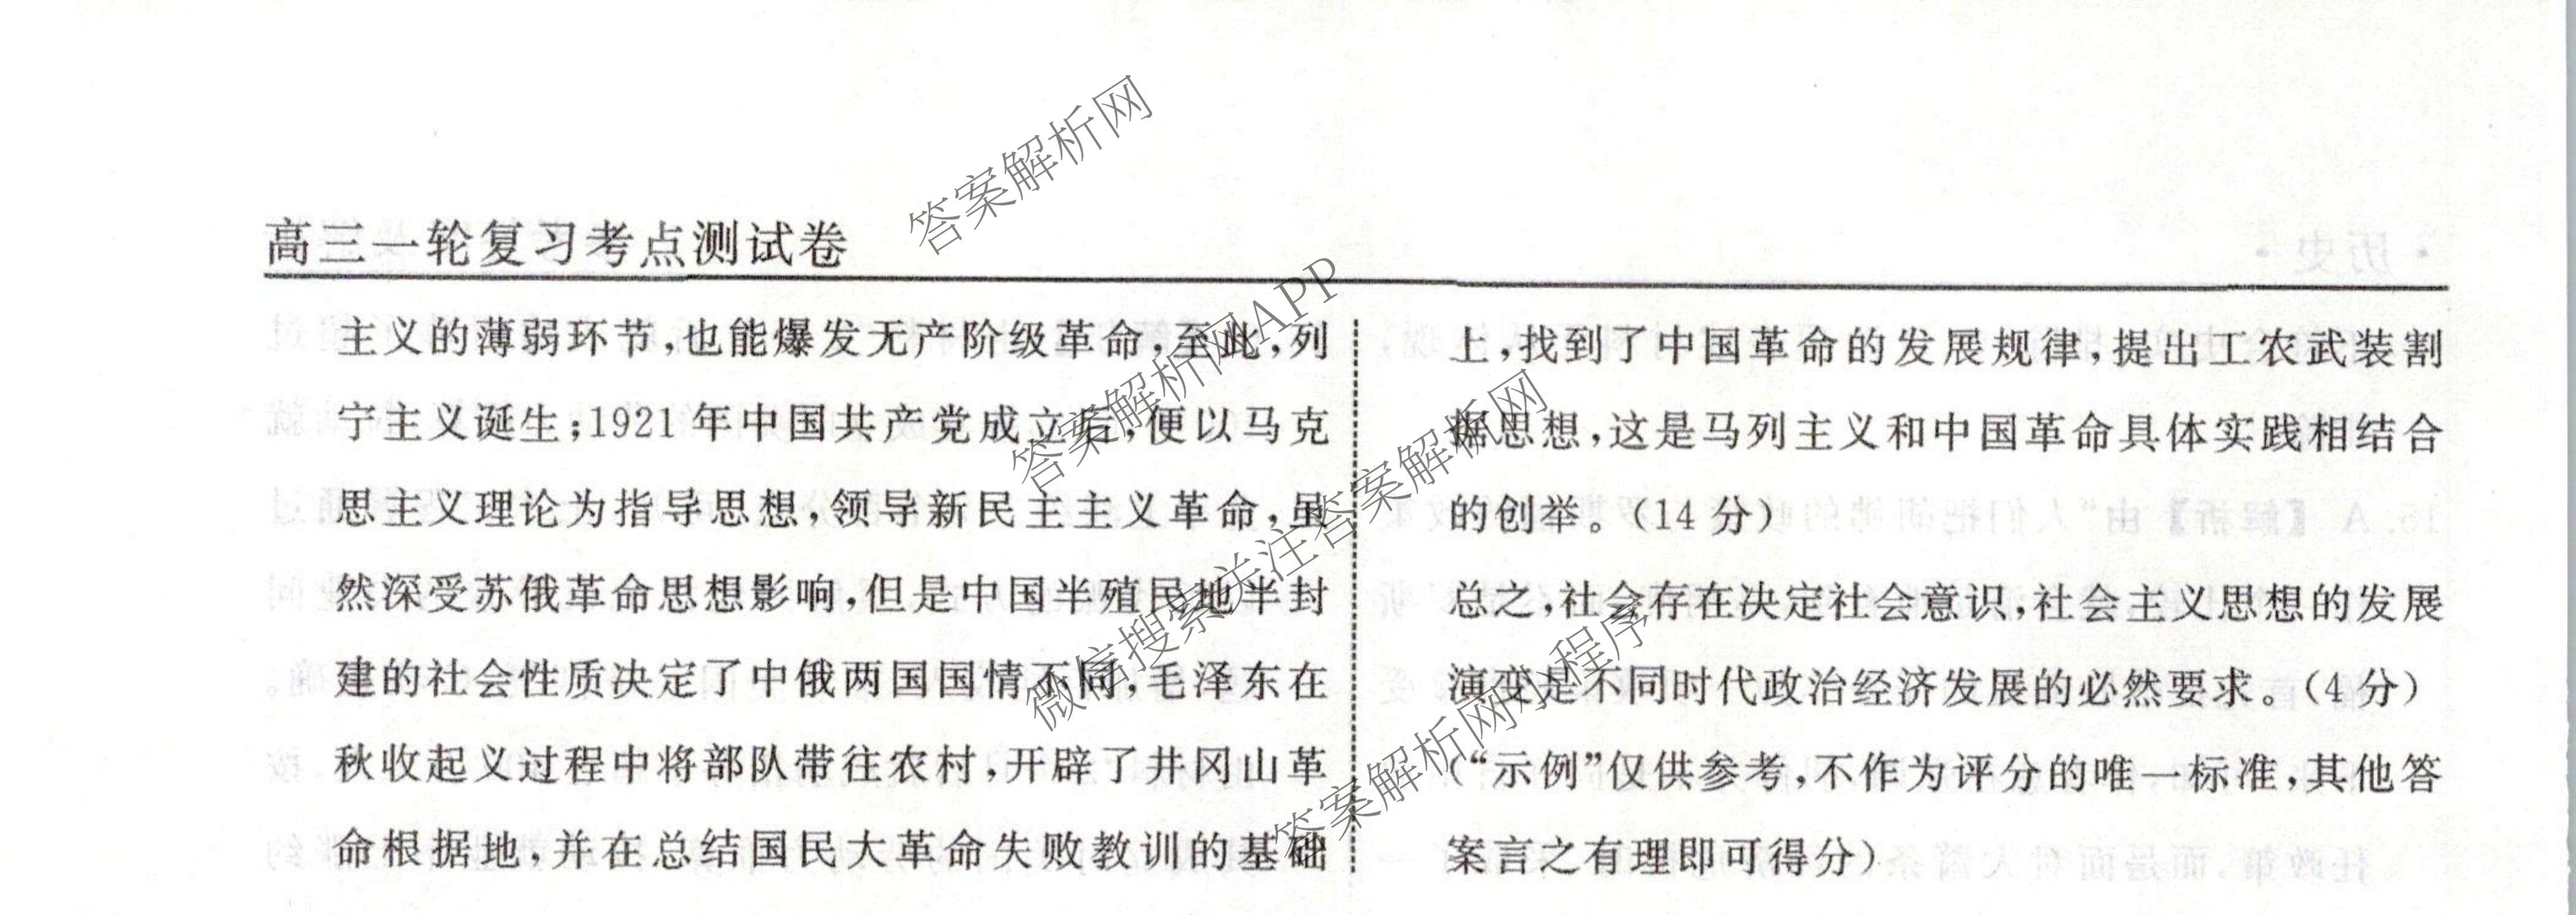 高三一轮复习考点测试卷
主义的薄弱环节,也能爆发无产阶级革命,至此,列
宁主义诞生;1921年中国共产党成立后,便以马克
思主义理论为指导思想,领导新民主主义革命,虽
然深受苏俄革命思想影响,但是中国半殖民地半封
建的社会性质决定了中俄两国国情不同,毛泽东在
秋收起义过程中将部队带往农村,开辟了井冈山革
命根据地,并在总结国民大革命失败教训的基础
上,找到了中国革命的发展规律,提出工农武装割
据思想,这是马列主义和中国革命具体实践相结合
的创举。(14分)
总之,社会存在决定社会意识,社会主义思想的发展
演变是不同时代政治经济发展的必然要求。(4分)
(“示例”仅供参考,不作为评分的唯一标准,其他答
案言之有理即可得分)
答案解析网
答案解析网APP
微信搜索关注答案解析网
答案解析网小程序
·历史·